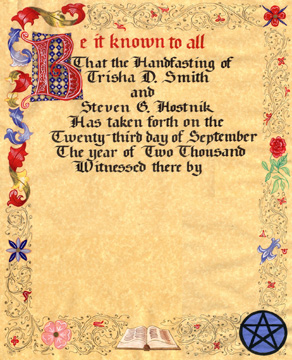 Be it known to all
That the Handfasting of
Trisha D. Smith
and
Steven G. Hostnik
Has taken forth on the
Twenty-third day of September
The year of Two Thousand
Witnessed there by